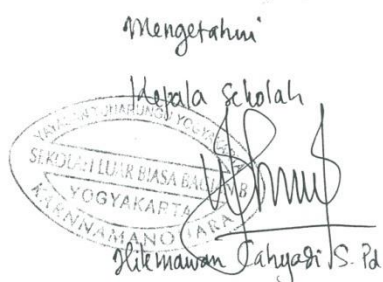 Mengetahui
Kepala Sekolah
YAYASAN
SEKOLAH LUAR BIASA BAGIAN B
YOGYAKARTA
KARNNAMANOHARA
Hikmawan Cahyadi S. Pd